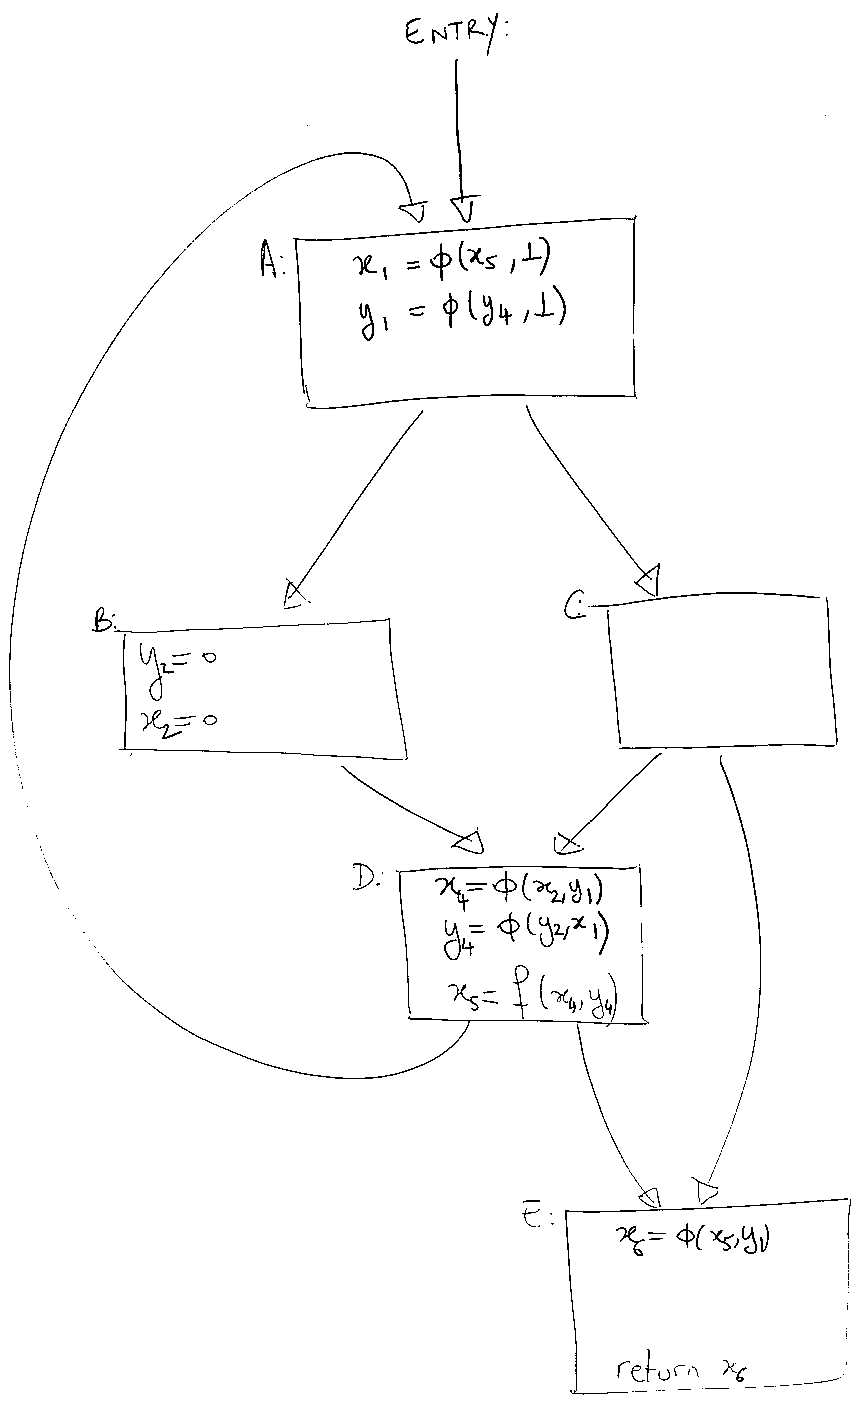 ENTRY:
A:
x₁ = ϕ(x₅, ⊥)
y₁ = ϕ(y₄, ⊥)
B:
y₂ = 0
x₂ = 0
C:
D:
x₄ = ϕ(x₂, y₁)
y₄ = ϕ(y₂, x₁)
x₅ = f(x₄, y₄)
E:
x₆ = ϕ(x₅, y₁)
return x₆